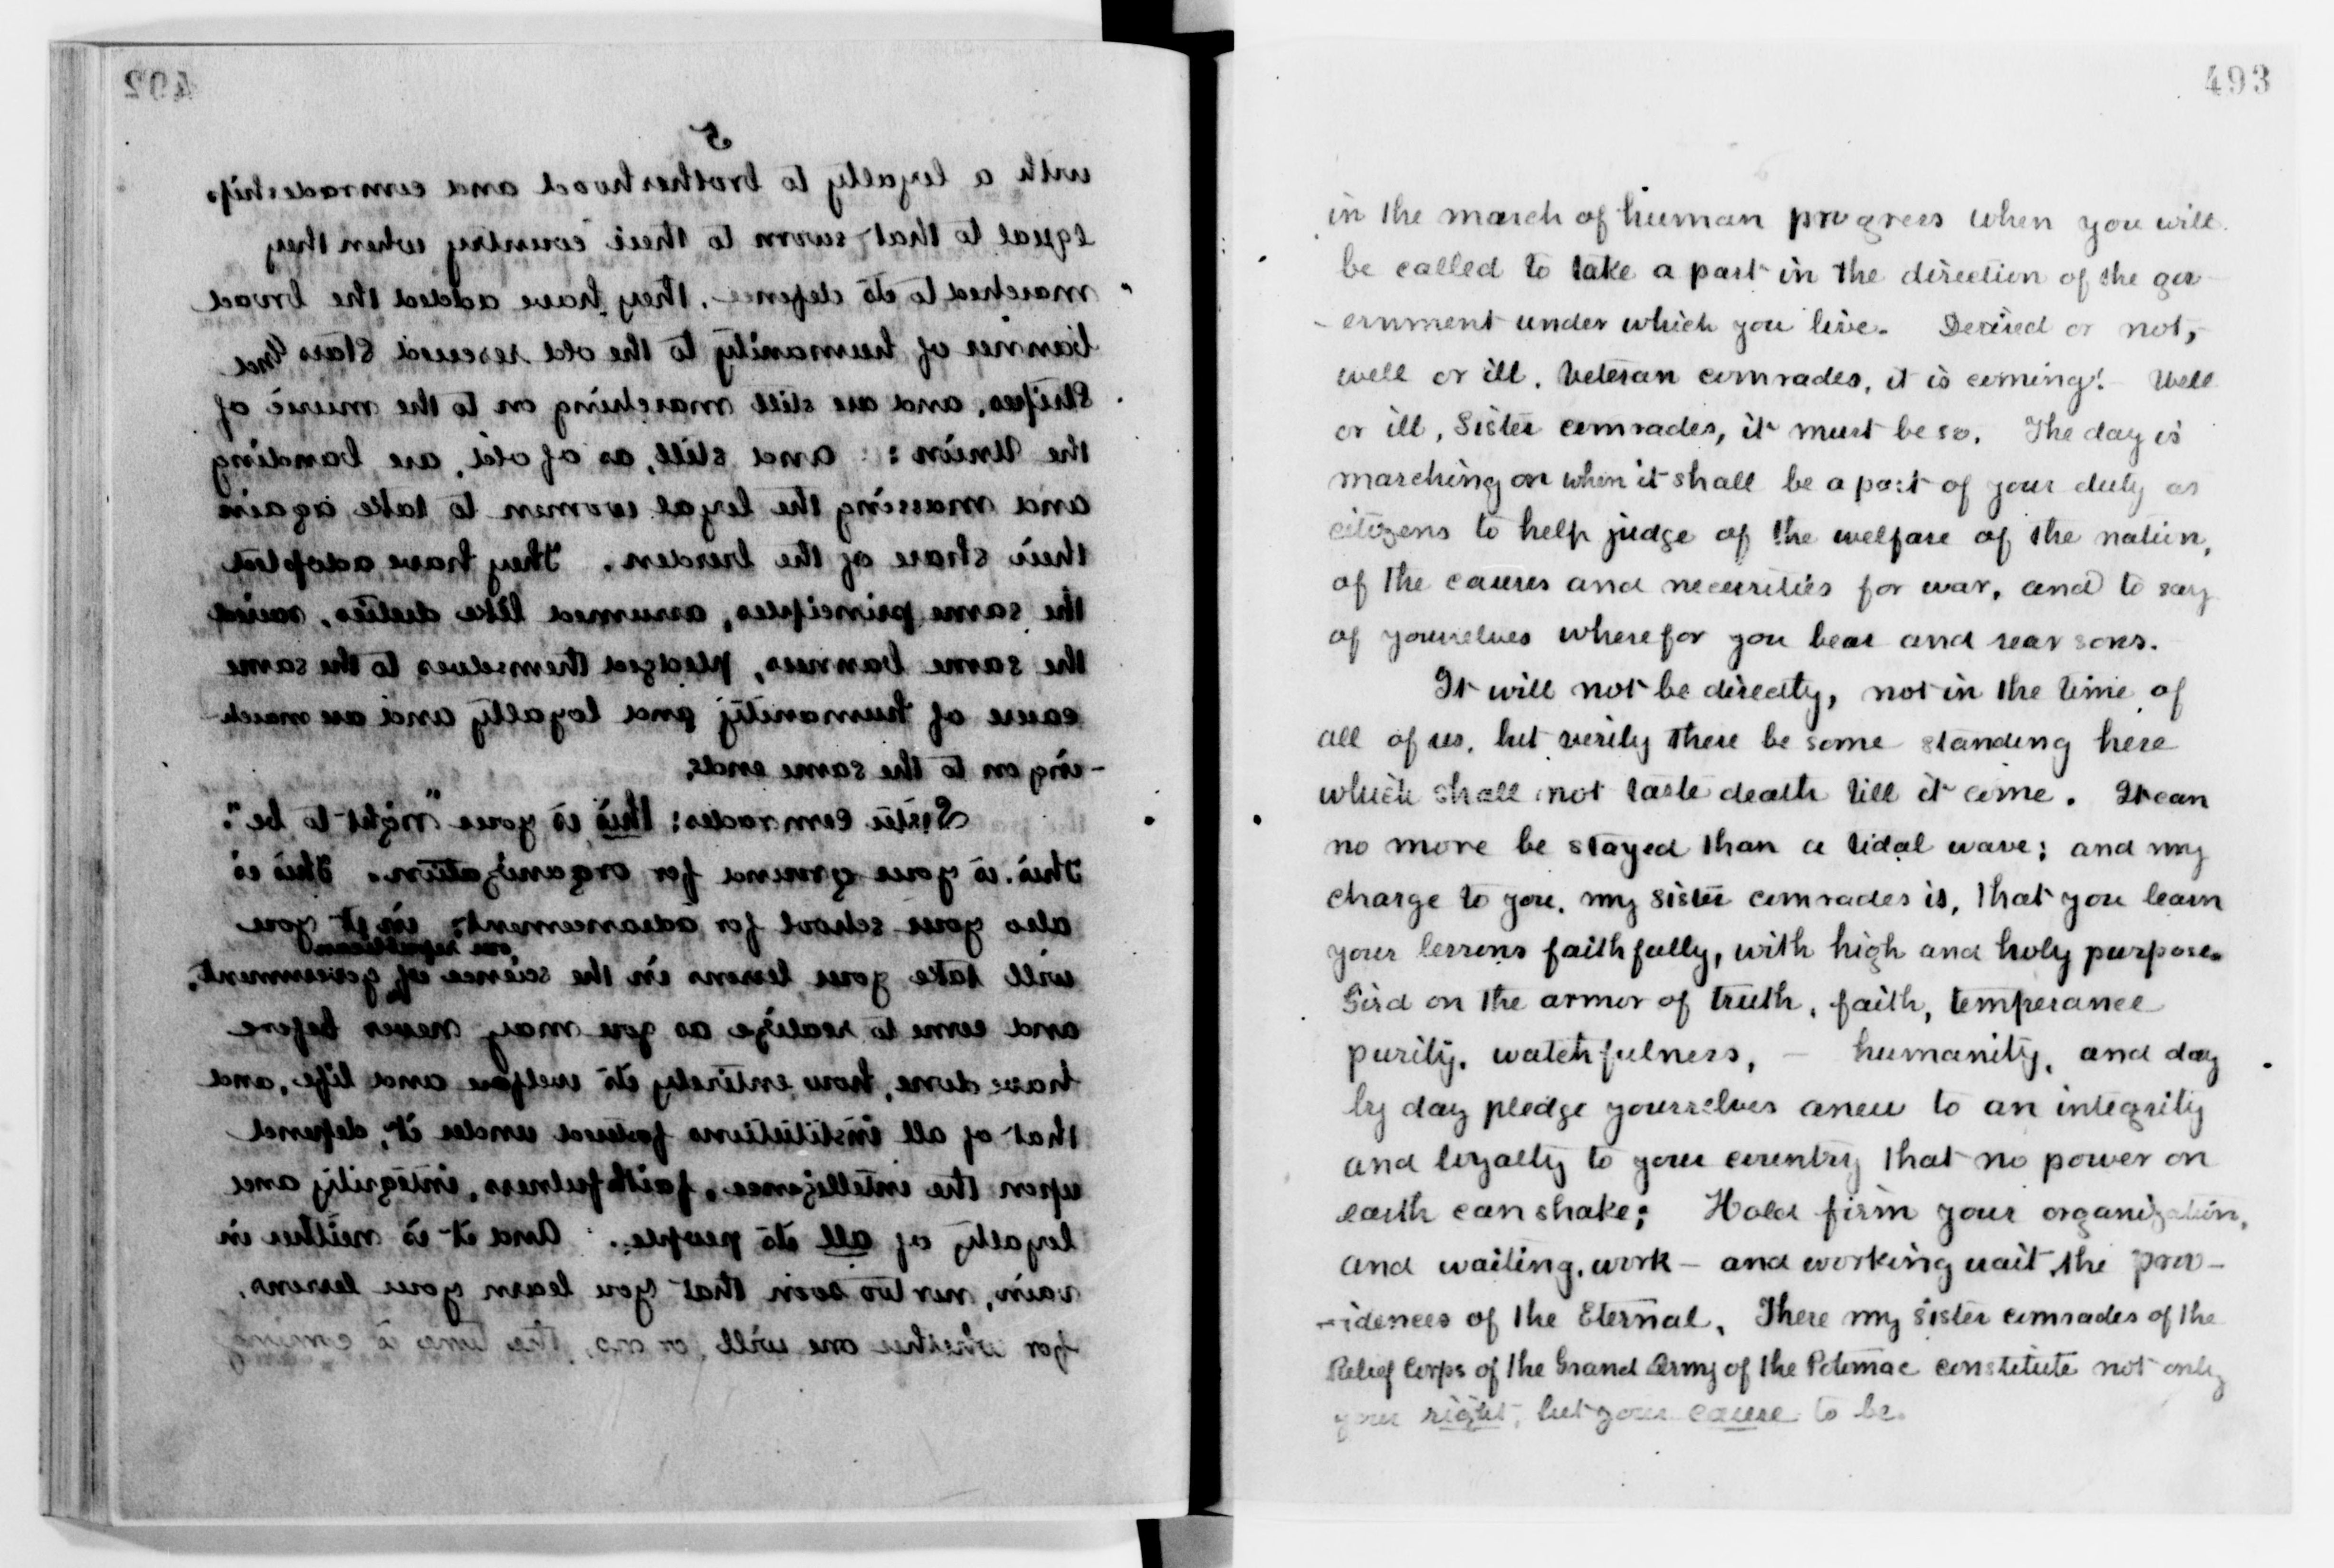 492
5
with a loyalty to brotherhood and comradeship.
equal to that sworn to their country when they
marched to its defence. they have added the broad
banner of humanity to the old rescued Stars and
Stripes, and are still marching on to the music of
the Union: and still, as of old, are banding
and massing the loyal women to take again
their share of the burden. They have adopted
the same principles, assumed like duties, raised
the same banner, pledged themselves to the same
cause of humanity and loyalty and are march
-ing on to the same ends.
Sister comrades: this is your "right to be".
This is your ground for organization. This is
also your school for advancement; in it you
our republican
will take your lessons in the science of government,
and come to realize as you may never before
have done, how entirely its welfare and life, and
that of all institutions fostered under it, depend
upon the intelligence, faithfulness, integrity and
loyalty of all its people. And it is neither in
vain, nor too soon that you learn your lessons.
for whether one will, or no, the time is coming
493
in the march of human progress when you will
be called to take a part in the direction of the gov
- ernment under which you live. Desired or not,
well or ill, veteran comrades, it is coming! Well
or ill, Sister comrades, it must be so. The day is
marching on when it shall be a part of your duty as
citizens to help judge of the welfare of the nation,
of the causes and necessities for war, and to say
of yourselves wherefor you bear and rear sons.
It will not be directly, not in the time of
all of us, but verily there be some standing here
which shall not taste death till it come. It can
no more be stayed than a tidal wave; and my
charge to you, my sister comrades is, that you learn
your lessons faithfully, with high and holy purpose.
Gird on the armor of truth, faith, temperance
purity, watchfulness, - humanity, and day
by day pledge yourselves anew to an integrity
and loyalty to your country that no power on
earth can shake; Hold firm your organization,
and waiting, work - and working wait, the prov -
-idences of the Eternal. There my sister comrades of the
Relief Corps of the Grand Army of the Potomac constitute not only
your right, but your cause to be.